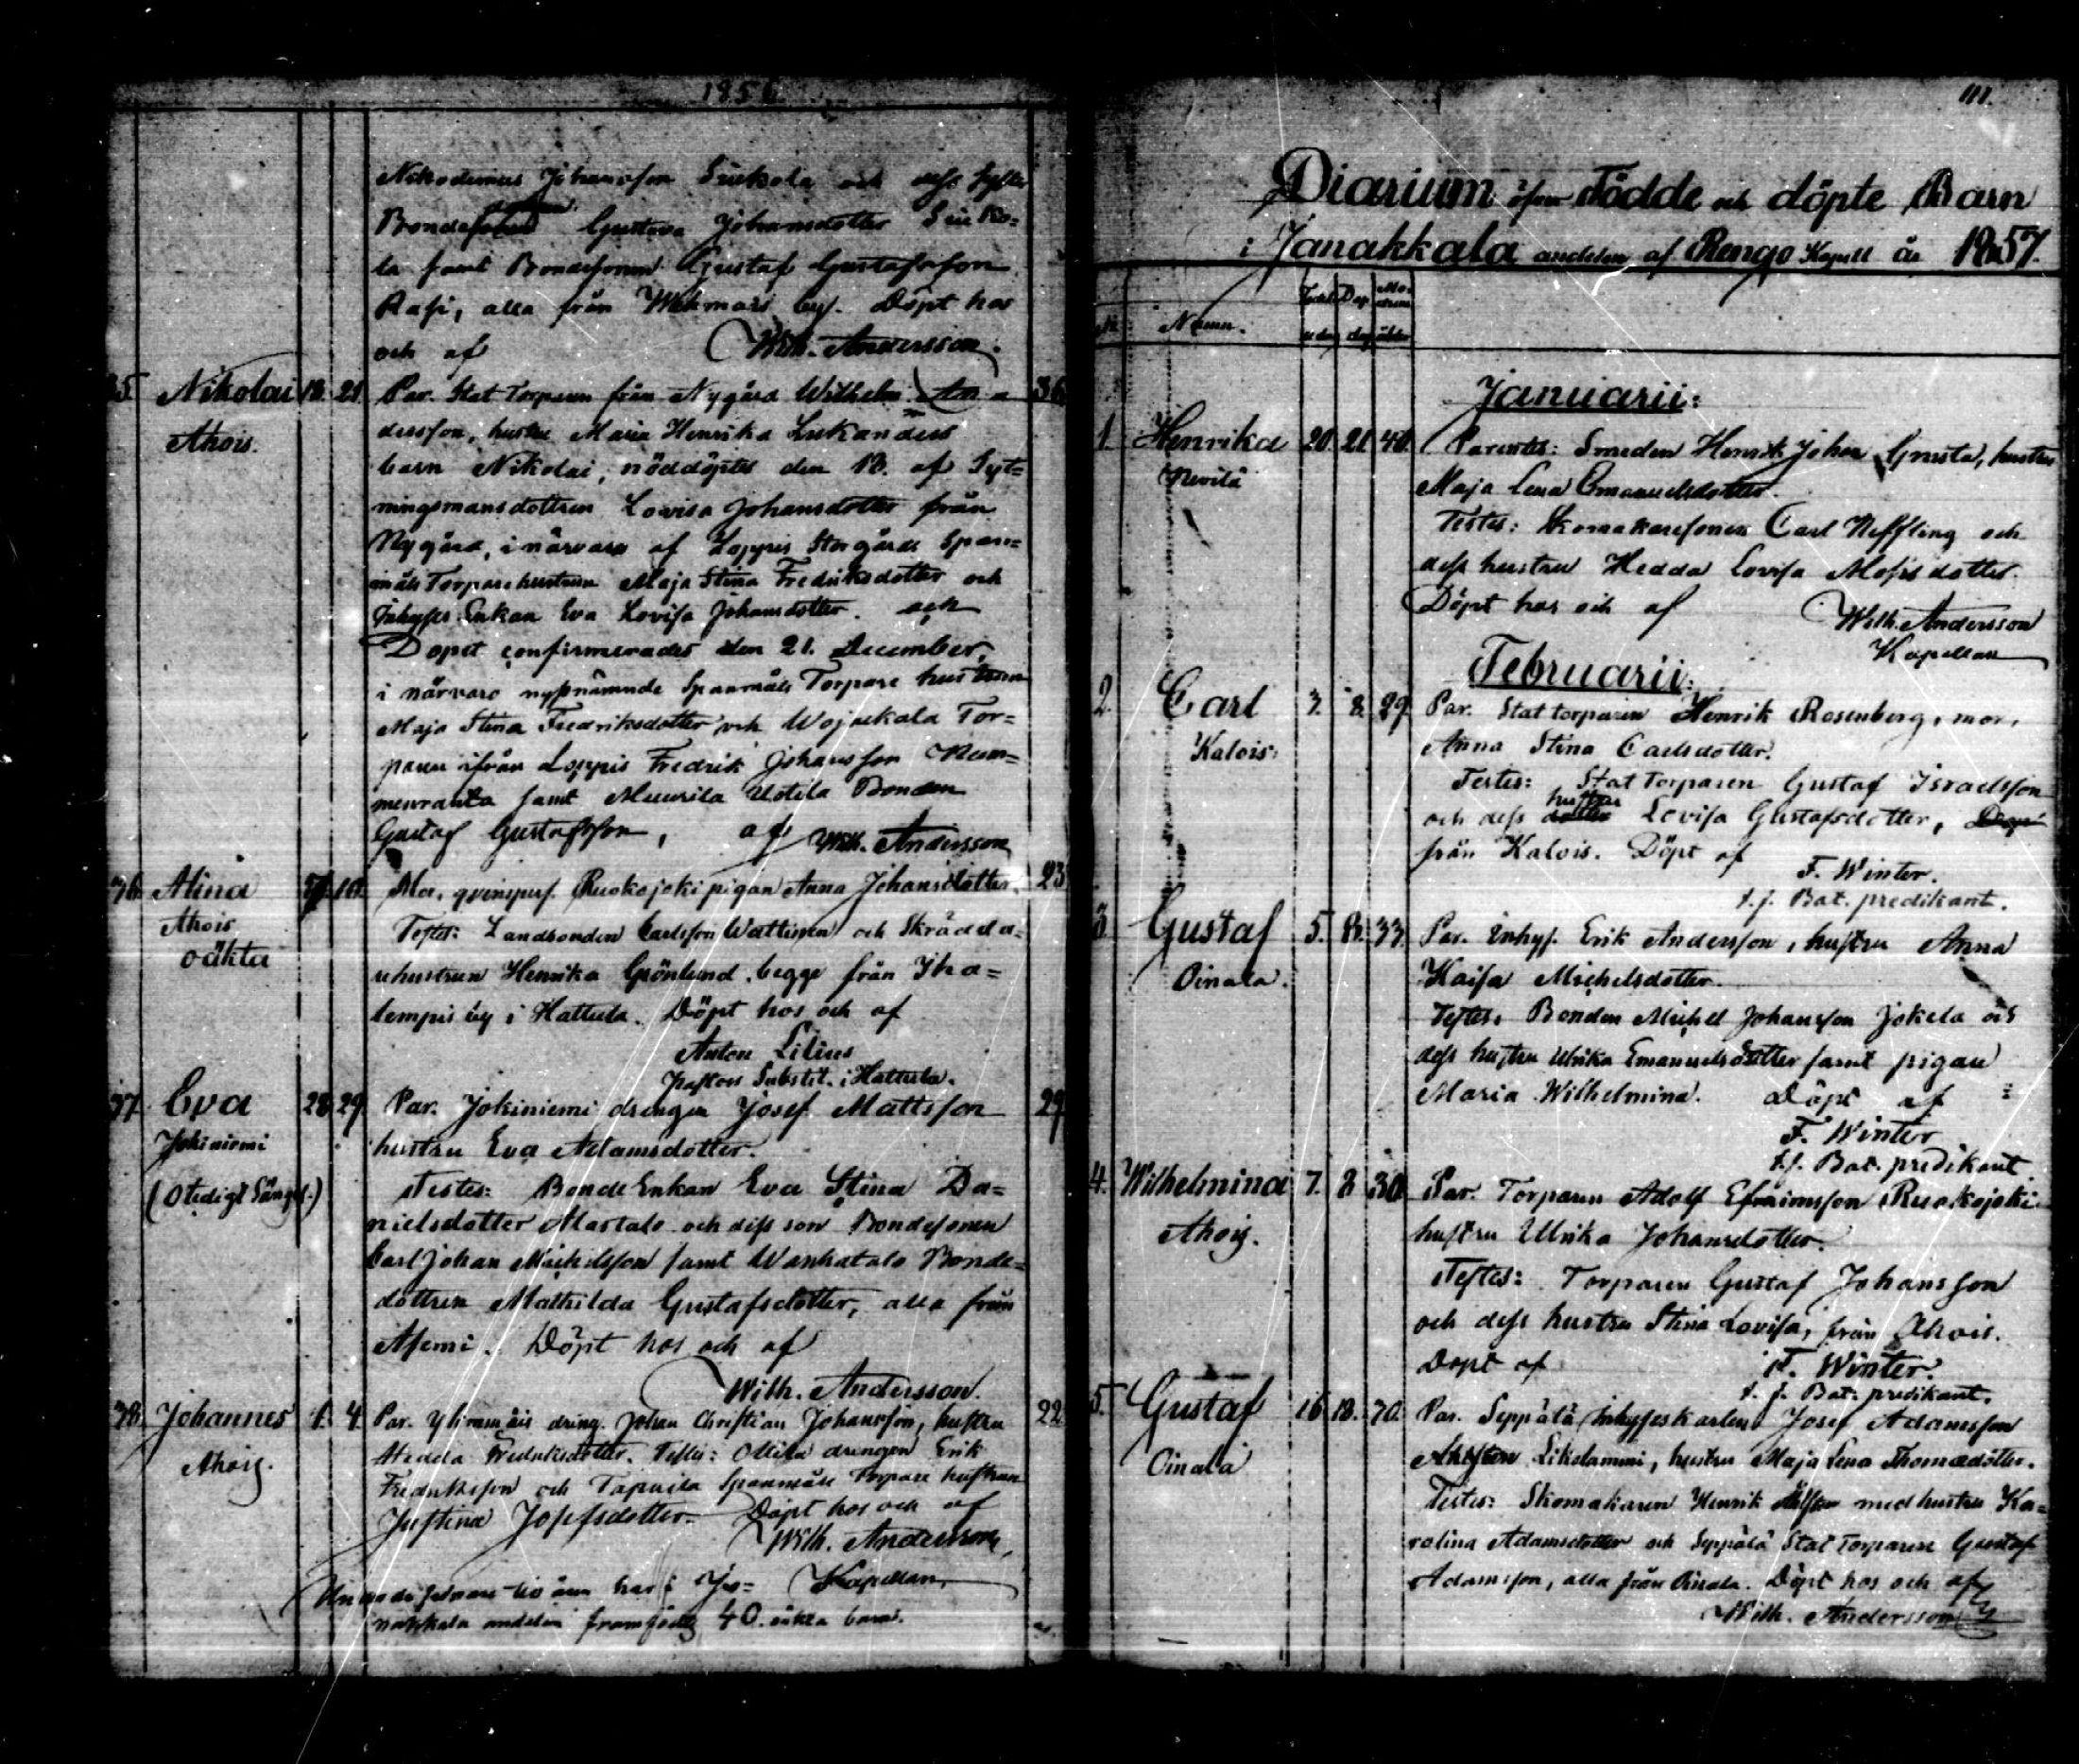 1856
Nikodemus Johansson och dess syster
Bonde Gustava Johansdotter
la samt Bondesonen Gustaf Gustafsson
Rasi, alla från by. Döpt hos
och af Wilh. Andersson.
35 Nikolai 18. 21. Par. Stat Torparen från Nygård Wilhelm An= 36
Ahois. dersson, hustru Maria Henrika Lukanders
barn Nikolai, nöddöptes den 18. af
ningsmansdottren Lovisa Johansdotter från
Nygård, i närvaro af Loppis Storgårds Span=
måls Torparehustrun Maja Stina Fredriksdotter och
Inhyses Enkan Eva Lovisa Johansdotter. och
Dopet confirmerades den 21. December,
i närvaro nyssnämnde Spanmåls Torpare hustrun
Maja Stina Fredriksdotter och Wojakala Tor=
paren ifrån Loppis Fredrik Johansson Num=
menranta samt Muurila Uotila Bonden
Gustaf Gustafsson, af Wilh. Andersson
36 Alina 10. Mor, qvinspers. Ruokojoki pigan Anna Johansdotter. 23
Ahois Testes: Landbonden Carlsson Wattinen och Skrädda=
oäkta rehustrun Henrika Grönlund, begge från Iha=
lempis by i Hattula. Döpt hos och af
Anton Lilius
Pastors Substit. i Hattula.
37 Eva 28 29 Par. Jokiniemi drengen Josef Mattsson 29
Jokiniemi hustru Eva Adamsdotter.
(otidigt Sängel.) Testes: Bonde Enkan Eva Stina Da=
nielsdotter Martalo och dess son Bondesonen
Carl Johan Michelsson samt Wanhatalo Bonde=
dottren Mathilda Gustafsdotter, alla från
Asemi. Döpt hos och af
Wilh. Andersson.
38 Johannes 1. 4. Par. dreng. Johan Christian Johansson, hustru 22
Ahois. Hedda Fredriksdotter. Testes: Ollila drengen Erik
Fredriksson och Tapaila Spanmåls Torpare hustrun
Justina Josefsdotter. Döpt hos och af
Wilh. Andersson,
Kapellan
har i Ja=
nakkala andelen framfödts 40. äkta barn.
111.
Diarium öfver Födde och döpte Barn
i Janakkala andelen af Rengo Kapell år 1857.
N. Namn. Födel se dag Dop dag Mo drens ålder
Januarii:
1. Henrika 20. 21. 40. Parentes: Smeden Henrik Johan Grusta, hustru
Nevilä Maja Lena Emanuelsdotter.
Testes: Skomakaresonen Carl Neffling och
dess hustru Hedda Lovisa Mosisdotter.
Döpt hos och af Wilh. Andersson
Kapellan
Februarii:
2. Carl 3. 8. 29 Par. Stat torparen Henrik Rosenberg, mor,
Kalois: Anna Stina Carlsdotter.
Testes: Stat Torparen Gustaf Israelsson
och dess hustru Lovisa Gustafsdotter,
från Kalois. Döpt af F. Winter.
t. f. Bat. predikant.
3 Gustaf 5. 8. 33. Par. Inhys. Erik Andersson, hustru Anna
Oinala. Kaisa Michelsdotter.
Testes: Bonden Michel Johansson Jokela och
dess hustru Ulrika Emanuelsdotter samt pigan
Maria Wilhelmina. Döpt af
F. Winter
t. f. Bat. predikant
4. Wilhelmina 7. 8 30 Par. Torparen Adolf Efraimsson Ruokojoki
Ahois. hustru Ulrika Johansdotter.
Testes: Torparen Gustaf Johansson
och dess hustru Stina Lovisa, från Ahois.
Döpt af F. Winter.
t. f. Bat. predikant.
5. Gustaf 16. 18. Par. Seppälä Inhyseskarlen Josef Adamsson
Oinala Likolammi, hustru Maja Lena Thomædotter.
Testes: Skomakaren Henrik med hustru Ka=
rolina Adamsdotter och Seppälä Stat Torparen Gustaf
Adamsson, alla från Oinala. Döpt hos och af
Wilh. Andersson